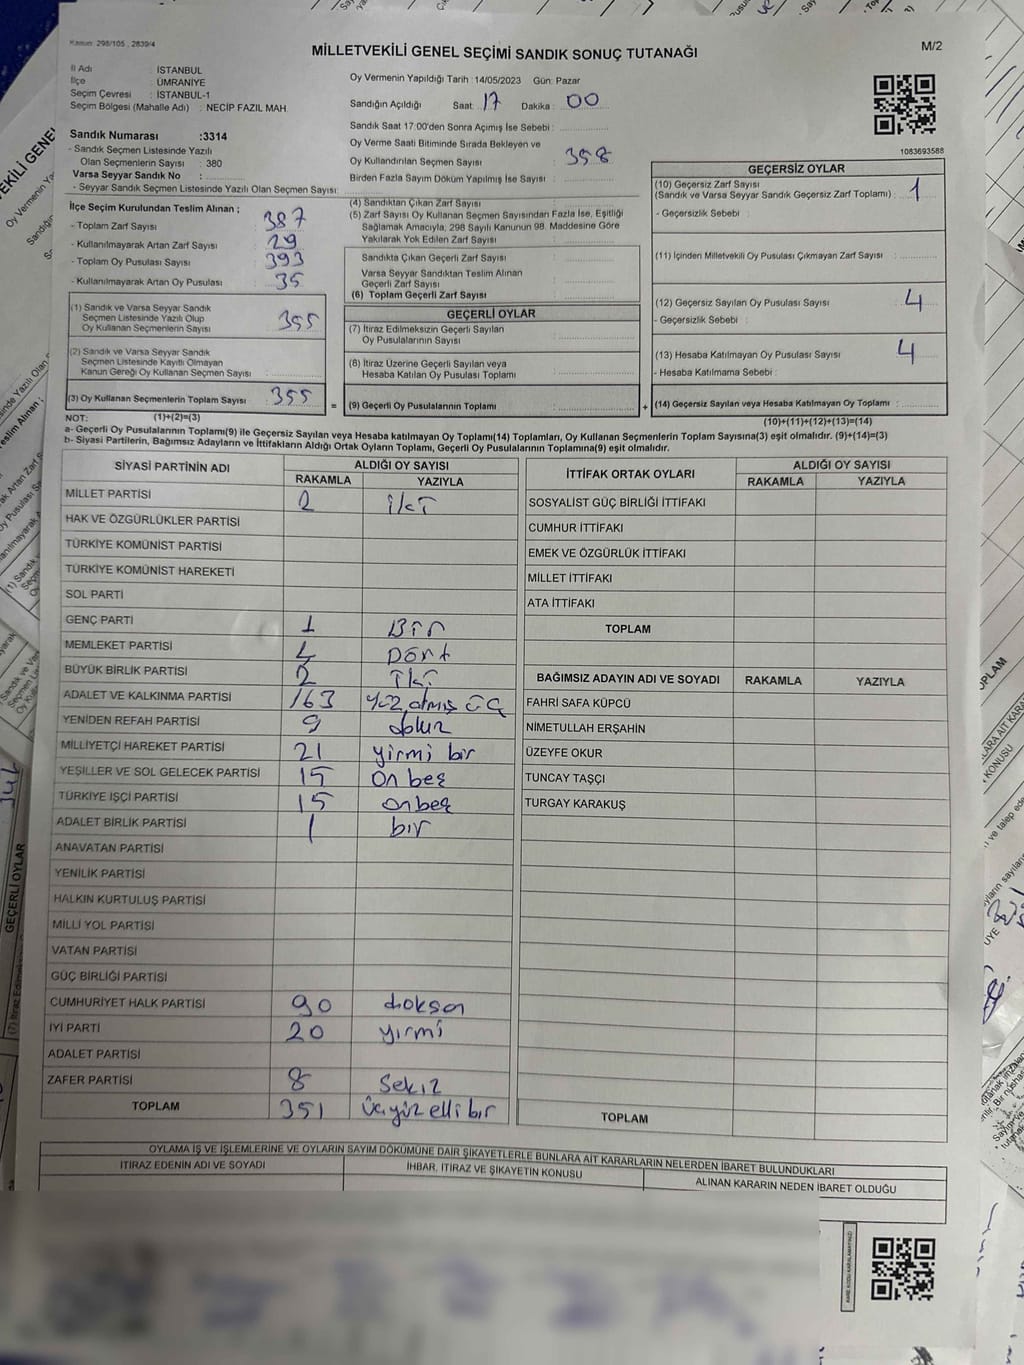 Kanun: 298/105 , 2839/4
MİLLETVEKİLİ GENEL SEÇİMİ SANDIK SONUÇ TUTANAĞI
M/2
İl Adı : İSTANBUL
İlçe : ÜMRANİYE
Seçim Çevresi : İSTANBUL-1
Seçim Bölgesi (Mahalle Adı) : NECİP FAZIL MAH.
Sandık Numarası :3314
- Sandık Seçmen Listesinde Yazılı
Olan Seçmenlerin Sayısı : 380
Varsa Seyyar Sandık No :
- Seyyar Sandık Seçmen Listesinde Yazılı Olan Seçmen Sayısı:
Oy Vermenin Yapıldığı Tarih : 14/05/2023 Gün: Pazar
Sandığın Açıldığı Saat: 17 Dakika : 00
Sandık Saat 17:00'den Sonra Açımış İse Sebebi :
Oy Verme Saati Bitiminde Sırada Bekleyen ve
Oy Kullandırılan Seçmen Sayısı : 358
Birden Fazla Sayım Döküm Yapılmış İse Sayısı :
1083693588
İlçe Seçim Kurulundan Teslim Alınan ;
- Toplam Zarf Sayısı : 387
- Kullanılmayarak Artan Zarf Sayısı : 29
- Toplam Oy Pusulası Sayısı : 393
- Kullanılmayarak Artan Oy Pusulası : 35
(1) Sandık ve Varsa Seyyar Sandık
Seçmen Listesinde Yazılı Olup
Oy Kullanan Seçmenlerin Sayısı : 355
(2) Sandık ve Varsa Seyyar Sandık
Seçmen Listesinde Kayıtlı Olmayan
Kanun Gereği Oy Kullanan Seçmen Sayısı :
(3) Oy Kullanan Seçmenlerin Toplam Sayısı : 355
(4) Sandıktan Çıkan Zarf Sayısı :
(5) Zarf Sayısı Oy Kullanan Seçmen Sayısından Fazla İse, Eşitliği
Sağlamak Amacıyla, 298 Sayılı Kanunun 98. Maddesine Göre
Yakılarak Yok Edilen Zarf Sayısı :
Sandıkta Çıkan Geçerli Zarf Sayısı :
Varsa Seyyar Sandıktan Teslim Alınan
Geçerli Zarf Sayısı :
(6) Toplam Geçerli Zarf Sayısı :
GEÇERLİ OYLAR
(7) İtiraz Edilmeksizin Geçerli Sayılan
Oy Pusulalarının Sayısı :
(8) İtiraz Üzerine Geçerli Sayılan veya
Hesaba Katılan Oy Pusulası Toplamı :
= (9) Geçerli Oy Pusulalarının Toplamı :
GEÇERSİZ OYLAR
(10) Geçersiz Zarf Sayısı
(Sandık ve Varsa Seyyar Sandık Geçersiz Zarf Toplamı) : 1
- Geçersizlik Sebebi :
(11) İçinden Milletvekili Oy Pusulası Çıkmayan Zarf Sayısı :
(12) Geçersiz Sayılan Oy Pusulası Sayısı : 4
- Geçersizlik Sebebi :
(13) Hesaba Katılmayan Oy Pusulası Sayısı : 4
- Hesaba Katılmama Sebebi :
+ (14) Geçersiz Sayılan veya Hesaba Katılmayan Oy Toplamı :
NOT: (1)+(2)=(3)
(10)+(11)+(12)+(13)=(14)
a- Geçerli Oy Pusulalarının Toplamı(9) ile Geçersiz Sayılan veya Hesaba katılmayan Oy Toplamı(14) Toplamları, Oy Kullanan Seçmenlerin Toplam Sayısına(3) eşit olmalıdır. (9)+(14)=(3)
b- Siyasi Partilerin, Bağımsız Adayların ve İttifakların Aldığı Ortak Oyların Toplamı, Geçerli Oy Pusulalarının Toplamına(9) eşit olmalıdır.
SİYASİ PARTİNİN ADI
ALDIĞI OY SAYISI
RAKAMLA YAZIYLA
MİLLET PARTİSİ 2 iki
HAK VE ÖZGÜRLÜKLER PARTİSİ
TÜRKİYE KOMÜNİST PARTİSİ
TÜRKİYE KOMÜNİST HAREKETİ
SOL PARTİ
GENÇ PARTİ 1 Bir
MEMLEKET PARTİSİ 4 Dört
BÜYÜK BİRLİK PARTİSİ 2 iki
ADALET VE KALKINMA PARTİSİ 163 yüz atmış üç
YENİDEN REFAH PARTİSİ 9 dokuz
MİLLİYETÇİ HAREKET PARTİSİ 21 yirmi bir
YEŞİLLER VE SOL GELECEK PARTİSİ 15 on beş
TÜRKİYE İŞÇİ PARTİSİ 15 onbeş
ADALET BİRLİK PARTİSİ 1 bir
ANAVATAN PARTİSİ
YENİLİK PARTİSİ
HALKIN KURTULUŞ PARTİSİ
MİLLİ YOL PARTİSİ
VATAN PARTİSİ
GÜÇ BİRLİĞİ PARTİSİ
CUMHURİYET HALK PARTİSİ 90 doksan
İYİ PARTİ 20 yirmi
ADALET PARTİSİ
ZAFER PARTİSİ 8 Sekiz
TOPLAM 351 üçyüz elli bir
İTTİFAK ORTAK OYLARI
ALDIĞI OY SAYISI
RAKAMLA YAZIYLA
SOSYALİST GÜÇ BİRLİĞİ İTTİFAKI
CUMHUR İTTİFAKI
EMEK VE ÖZGÜRLÜK İTTİFAKI
MİLLET İTTİFAKI
ATA İTTİFAKI
TOPLAM
BAĞIMSIZ ADAYIN ADI VE SOYADI RAKAMLA YAZIYLA
FAHRİ SAFA KÜPCÜ
NİMETULLAH ERŞAHİN
ÜZEYFE OKUR
TUNCAY TAŞÇI
TURGAY KARAKUŞ
TOPLAM
OYLAMA İŞ VE İŞLEMLERİNE VE OYLARIN SAYIM DÖKÜMÜNE DAİR ŞİKAYETLERLE BUNLARA AİT KARARLARIN NELERDEN İBARET BULUNDUKLARI
İTİRAZ EDENİN ADI VE SOYADI
İHBAR, İTİRAZ VE ŞİKAYETİN KONUSU
ALINAN KARARIN NEDEN İBARET OLDUĞU
KARE KODU KARALAMAYINIZ!